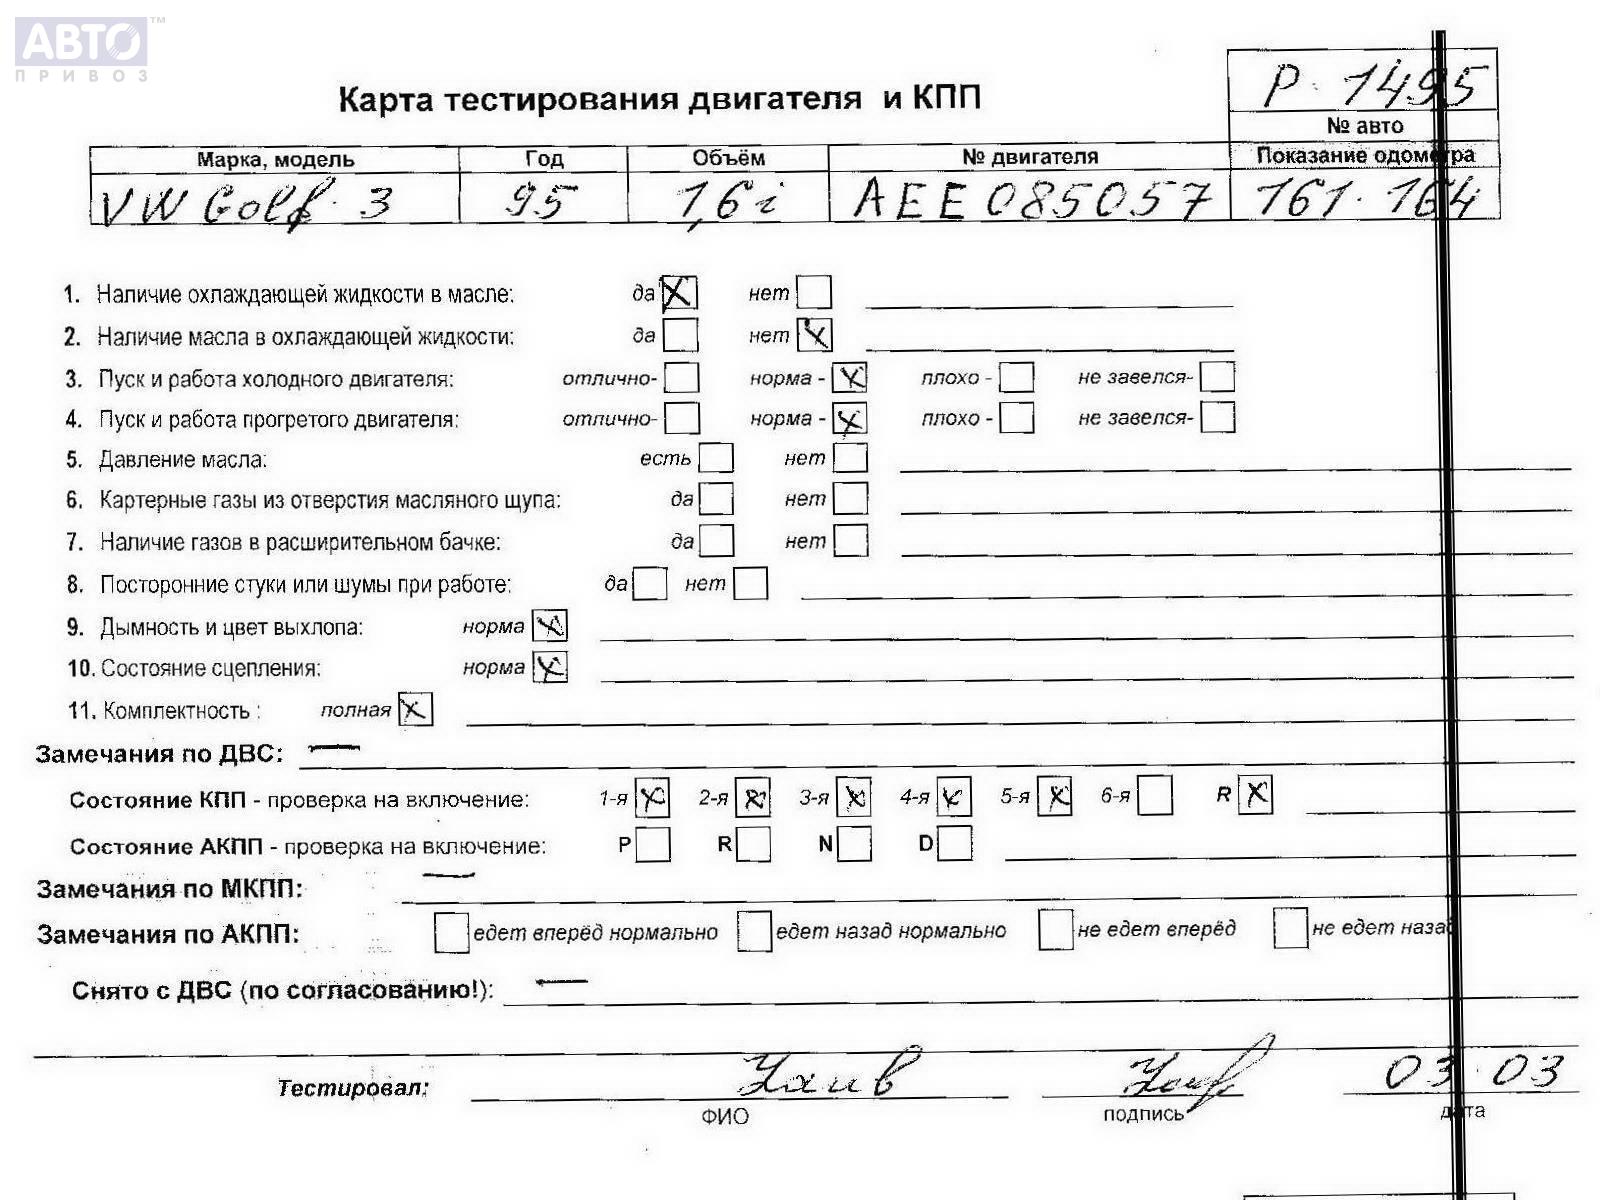 АВТО™
ПРИВОЗ
Р. 1495
Карта тестирования двигателя и КПП
№ авто
Марка, модель Год Объём № двигателя Показание одометра
VW Golf 3 95 1,6i AEE085057 161.164
1. Наличие охлаждающей жидкости в масле: да X нет
2. Наличие масла в охлаждающей жидкости: да нет X
3. Пуск и работа холодного двигателя: отлично- норма - X плохо - не завелся-
4. Пуск и работа прогретого двигателя: отлично- норма - X плохо - не завелся-
5. Давление масла: есть нет
6. Картерные газы из отверстия масляного щупа: да нет
7. Наличие газов в расширительном бачке: да нет
8. Посторонние стуки или шумы при работе: да нет
9. Дымность и цвет выхлопа: норма X
10. Состояние сцепления: норма X
11. Комплектность : полная X
Замечания по ДВС: —
Состояние КПП - проверка на включение: 1-я X 2-я X 3-я X 4-я X 5-я X 6-я R X
Состояние АКПП - проверка на включение: P R N D
Замечания по МКПП: —
Замечания по АКПП: едет вперёд нормально едет назад нормально не едет вперёд не едет назад
Снято с ДВС (по согласованию!): —
Тестировал: 03.03
ФИО подпись дата